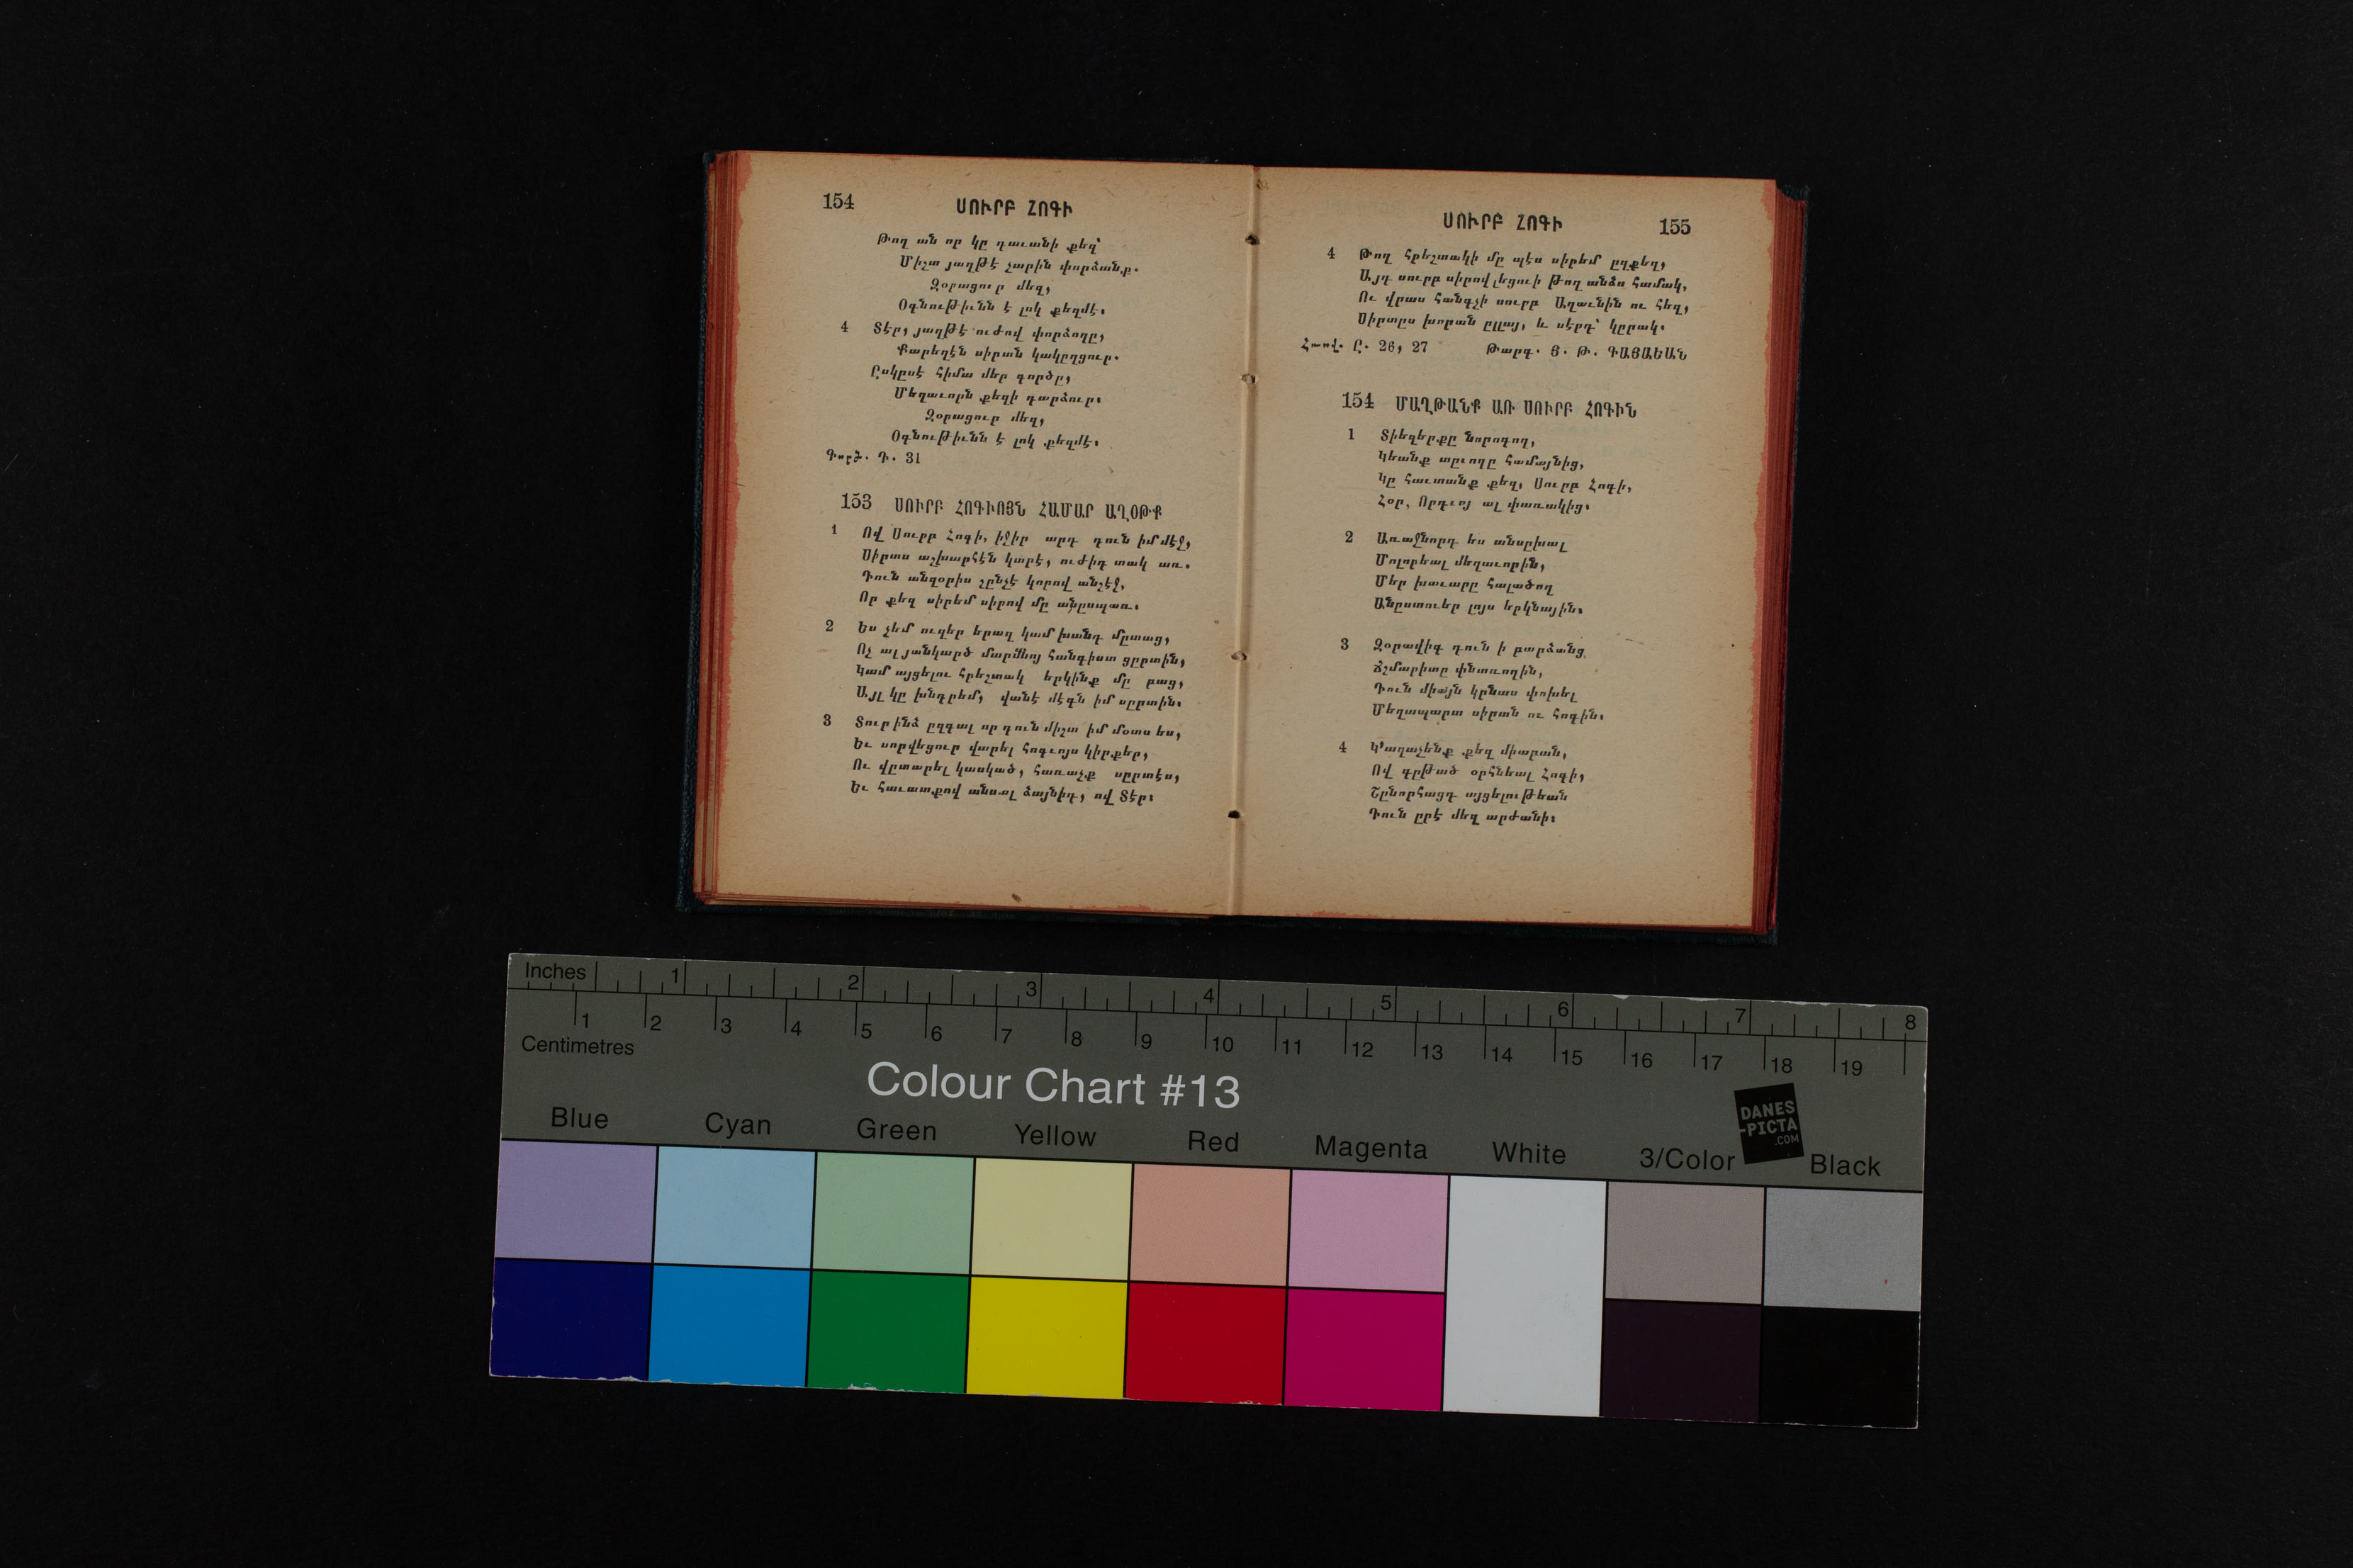 154
ՍՈՒՐԲ ՀՈԳԻ
Թող ան որ կը դաւանի քեզ՝
Միշտ յաղթէ չարին փորձանք.
Զօրացուր մեզ,
Օգնութիւնն է լոկ քեզմէ.
4 Տէր, յաղթէ ուժով փորձողը,
Քարեղէն սիրտն կակըղցուր.
Ըսկըսէ հիմա մեր գործը,
Մեղաւորն քեզի դարձուր.
Զօրացուր մեզ,
Օգնութիւնն է լոկ քեզմէ.
Գործ. Դ. 31
153 ՍՈՒՐԲ ՀՈԳԻՈՅՆ ՀԱՄԱՐ ԱՂՕԹՔ
1 Ով Սուրբ Հոգի, իջիր արդ դուն իմ մէջ,
Սիրտս աշխարհէն կտրէ, ուժիդ տակ առ.
Դուն անզօրիս շընչէ կորով անշէջ,
Որ քեզ սիրեմ սիրով մը անըսպառ.
2 Ես չեմ ուզեր երազ կամ խանդ մըտաց,
Ոչ ալ յանկարծ մարմնոյ հանգիստ ցըրտին,
Կամ այցելու հրեշտակ երկինք մը բաց,
Այլ կը խնդրեմ, վանէ մէգն իմ սըրտին.
3 Տուր ինձ ըզգալ որ դուն միշտ իմ մօտս ես,
Եւ սորվեցուր վարել հոգւոյս կիրքեր,
Ու վըտարել կասկած, հառաչք սըրտէս,
Եւ հաւատքով անսալ ձայնիդ, ով Տէր.
ՍՈՒՐԲ ՀՈԳԻ
155
4 Թող հրեշտակի մը պէս սիրեմ ըզքեզ,
Այդ սուրբ սիրով լեցուի թող անձս համակ,
Ու վրաս հանգչի սուրբ Աղաւնին ու հեզ,
Սիրտըս խորան ըլլայ, և սէրդ՝ կըրակ.
Հռով. Ը. 26, 27 Թարգ. Յ. Թ. ԳԱՅԱԵԱՆ
154 ՄԱՂԹԱՆՔ ԱՌ ՍՈՒՐԲ ՀՈԳԻՆ
1 Տիեզերքը նորոգող,
Կեանք տըւողը համայնից,
Կը հաւտանք քեզ, Սուրբ Հոգի,
Հօր, Որդւոյ ալ փառակից.
2 Առաջնորդ ես անսըխալ
Մոլորեալ մեղաւորին,
Մեր խաւարը հալածող
Անըստուեր լոյս երկնային.
3 Զօրավիգ դուն ի բարձանց
Ճշմարիտը փնտռողին,
Դուն միայն կրնաս փոխել
Մեղապարտ սիրտն ու հոգին.
4 Կ՚աղաչենք քեզ միաբան,
Ով գըթած օրհնեալ Հոգի,
Շընորհացդ այցելութեան
Դուն ըրէ մեզ արժանի.
Inches 1 2 3 4 5 6 7 8
1 2 3 4 5 6 7 8 9 10 11 12 13 14 15 16 17 18 19
Centimetres
Colour Chart #13
DANES
-PICTA
.COM
Blue Cyan Green Yellow Red Magenta White 3/Color Black